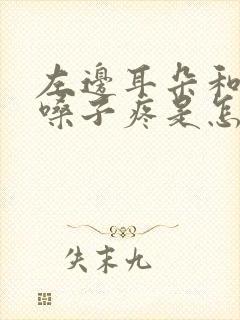 左邊耳朵和
嗓子疼是怎
失末九